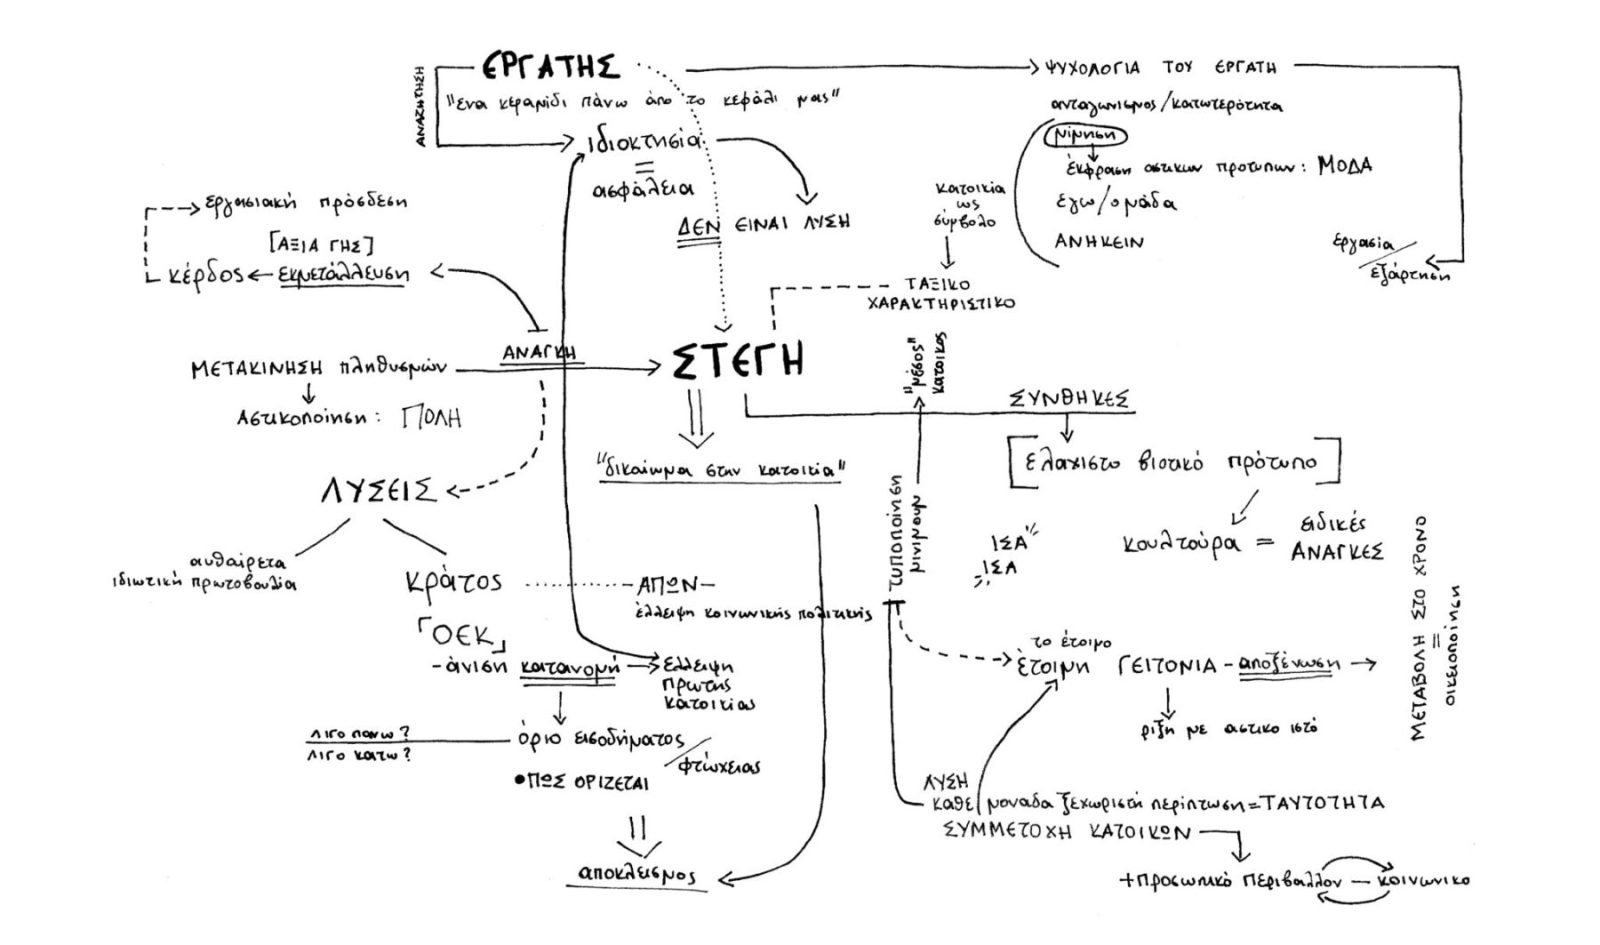 ΕΡΓΑΤΗΣ
ΑΝΑΖΗΤΗΣΗ
"ένα κεραμίδι πάνω από το κεφάλι μας"
ιδιοκτησία
=
ασφάλεια
ΔΕΝ ΕΙΝΑΙ ΛΥΣΗ
ΨΥΧΟΛΟΓΙΑ ΤΟΥ ΕΡΓΑΤΗ
ανταγωνισμος/κατωτερότητα
μίμηση
έκφραση αστικων προτυπων: ΜΟΔΑ
εγω/ομάδα
ΑΝΗΚΕΙΝ
εργασία/
εξάρτηση
κατοικία
ως
σύμβολο
ΤΑΞΙΚΟ
ΧΑΡΑΚΤΗΡΙΣΤΙΚΟ
εργασιακή πρόσδεση
[ΑΞΙΑ ΓΗΣ]
κέρδος ← εκμετάλλευση
ΜΕΤΑΚΙΝΗΣΗ πληθυσμών
ΑΝΑΓΚΗ
ΣΤΕΓΗ
Αστικοποίηση: ΠΟΛΗ
"δικαίωμα στην κατοικία"
ΛΥΣΕΙΣ
αυθαίρετα
ιδιωτική πρωτοβουλία
κράτος
-ΑΠΩΝ-
έλλειψη κοινωνικής πολιτικής
「ΟΕΚ」
-άνιση κατανομή → έλλειψη
πρωτης
κατοικίας
όριο εισοδήματος/
φτώχειας
λιγο πανω?
λιγο κατω?
•ΠΩΣ ΟΡΙΖΕΤΑΙ
αποκλεισμος
"μέσος"
κάτοικος
τυποποίηση
μινιμουμ
ΣΥΝΘΗΚΕΣ
[ελαχιστο βιοτικό πρότυπο]
κουλτούρα = ειδικές
ΑΝΑΓΚΕΣ
ΙΣΑ
ΙΣΑ
το έτοιμο
έτοιμη ΓΕΙΤΟΝΙΑ - αποξένωση →
ρίξη με αστικο ιστό
ΜΕΤΑΒΟΛΗ ΣΤΟ ΧΡΟΝΟ
=
οικειοποίηση
ΛΥΣΗ
καθε μοναδα ξεχωριστή περίπτωση=ΤΑΥΤΟΤΗΤΑ
ΣΥΜΜΕΤΟΧΗ ΚΑΤΟΙΚΩΝ
+προσωπικό περιβαλλον — κοινωνικο